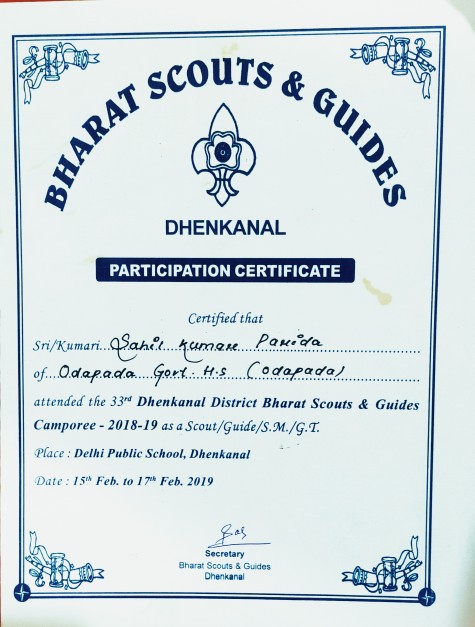 BHARAT SCOUTS & GUIDES
DHENKANAL
PARTICIPATION CERTIFICATE
Certified that
Sri/Kumari...Sahil Kumar Parida
of...Odapada Govt. H.S (Odapada)
attended the 33rd Dhenkanal District Bharat Scouts & Guides
Camporee - 2018-19 as a Scout/Guide/S.M./G.T.
Place : Delhi Public School, Dhenkanal
Date : 15th Feb. to 17th Feb. 2019
Secretary
Bharat Scouts & Guides
Dhenkanal